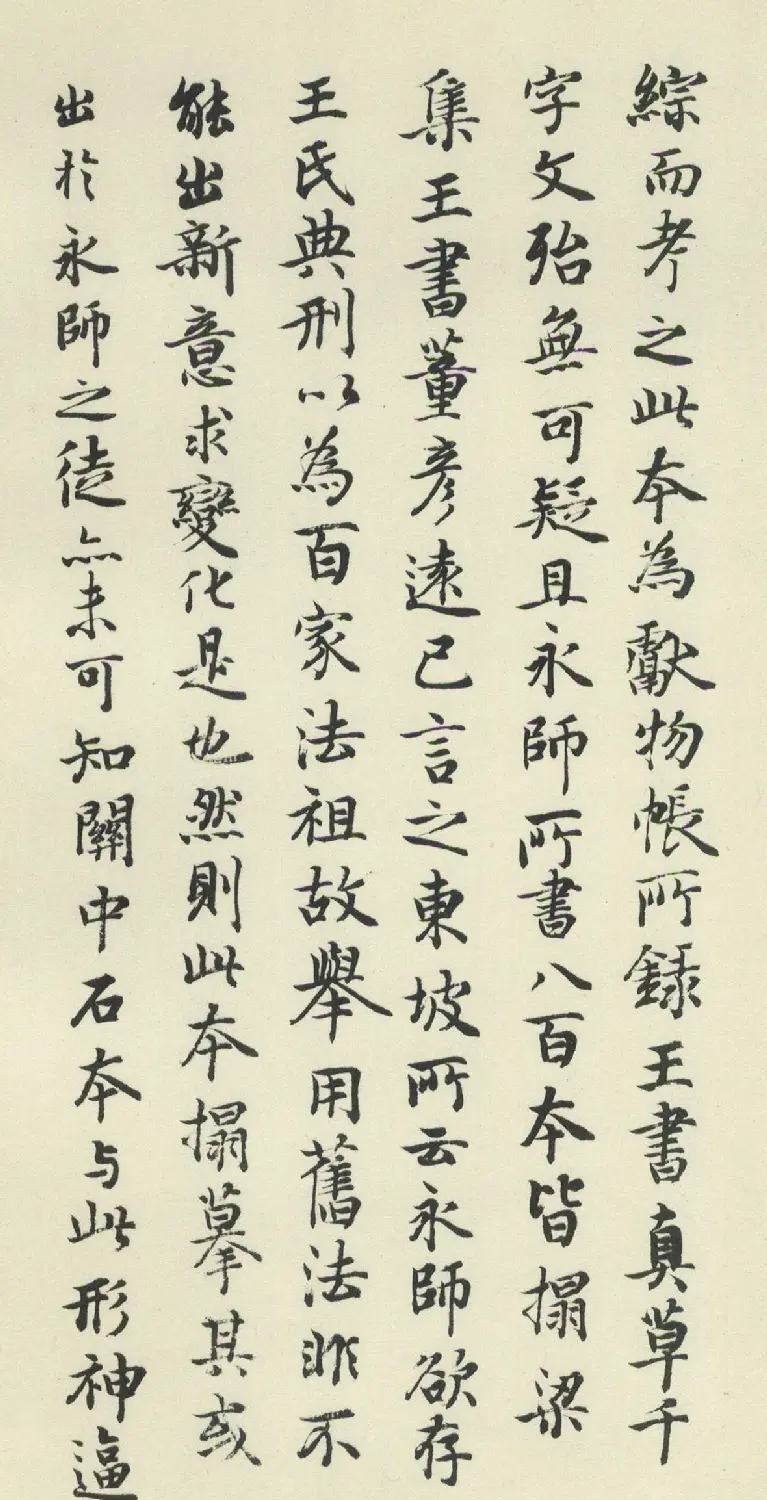 綜而考之此本為獻物帳所錄王書真草千
字文殆無可疑且永師所書八百本皆搨梁
集王書董彥遠已言之東坡所云永師欲存
王氏典刑以為百家法祖故舉用舊法非不
能出新意求變化是也然則此本搨摹其或
出於永師之徒亦未可知關中石本与此形神逼